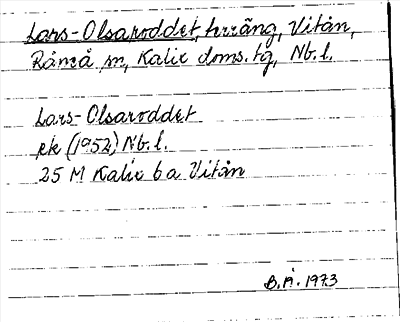 Lars-Olsaroddet, terräng, Vitån,
Råneå sn, Kalix doms.tg, Nb.l.
Lars-Olsaroddet
ek (1952) Nb.l.
25 M Kalix 6 a Vitån
B.Å. 1973